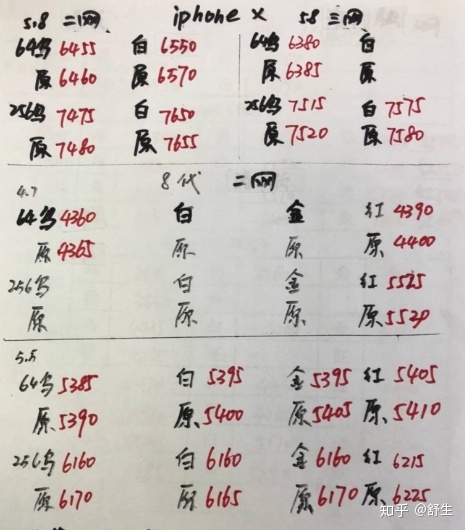 5.8 二网 iphone X 5.8 三网
64乌 6455 白 6550 64乌 6380 白
原 6460 原 6570 原 6385 原
256乌 7475 白 7650 256乌 7515 白 7575
原 7480 原 7655 原 7520 原 7580
4.7 8代 二网
64乌 4360 白 金 红 4390
原 4365 原 原 原 4400
256乌 白 金 红 5525
原 原 原 原 5530
5.5
64乌 5385 白 5395 金 5395 红 5405
原 5390 原 5400 原 5405 原 5410
256乌 6160 白 6160 金 6160 红 6215
原 6170 原 6165 原 6170 原 6225
知乎 @舒生